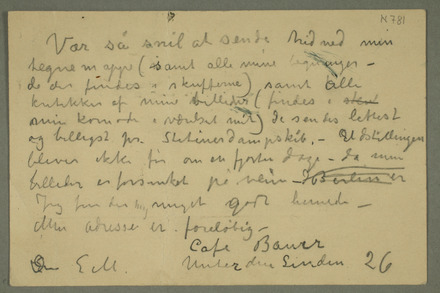 N 781
Vær så snil at sende hid ned min
tegne mappe (samt alle mine tegninger –
de der findes i skufferne) samt alle
kritikker af mine billeder (findes i
min komode i værelset mit) de sendes lettest
og billigst pr. Stettinerdampskib. – Udstillingen
bliver ikke før om en fjorten dage – da mine
billeder er forsinket på veien – I Berlin er
Jeg
meget godt hernede –
Min adresse er foreløbig –
Cafe Bauer
Din E M. Unter den Linden 26